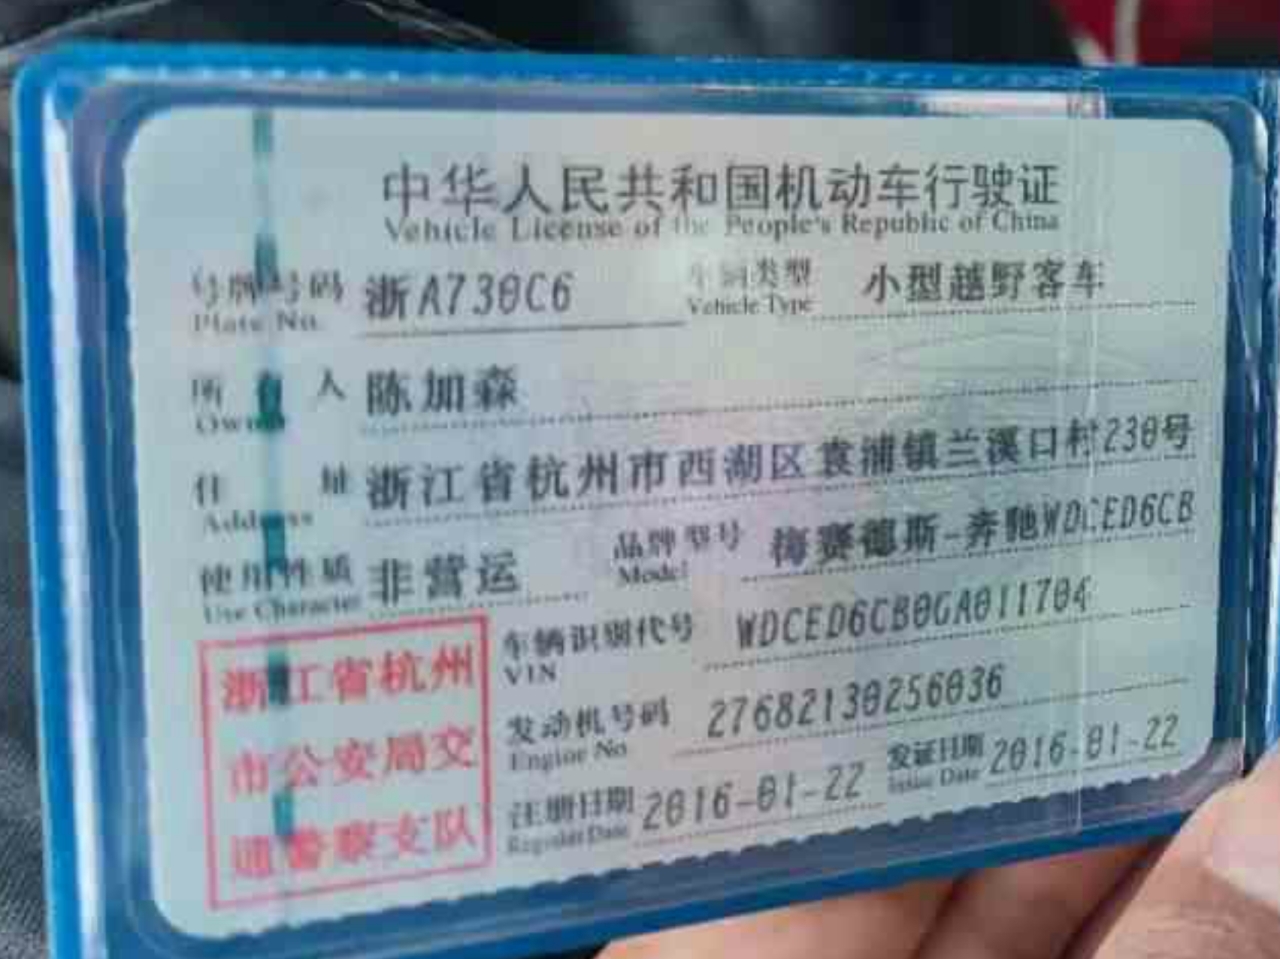 中华人民共和国机动车行驶证
Vehicle License of the People's Republic of China
号牌号码 浙A730C6 车辆类型 小型越野客车
Plate No. Vehicle Type
所有人 陈加森
Owner
住址 浙江省杭州市西湖区袁浦镇兰溪口村230号
Address
使用性质 非营运 品牌型号 梅赛德斯-奔驰WDCED6CB
Use Character Model
车辆识别代号 WDCED6CB0GA011704
VIN
发动机号码 27682130256036
Engine No
注册日期 2016-01-22 发证日期 2016-01-22
Register Date Issue Date
浙江省杭州
市公安局交
通警察支队